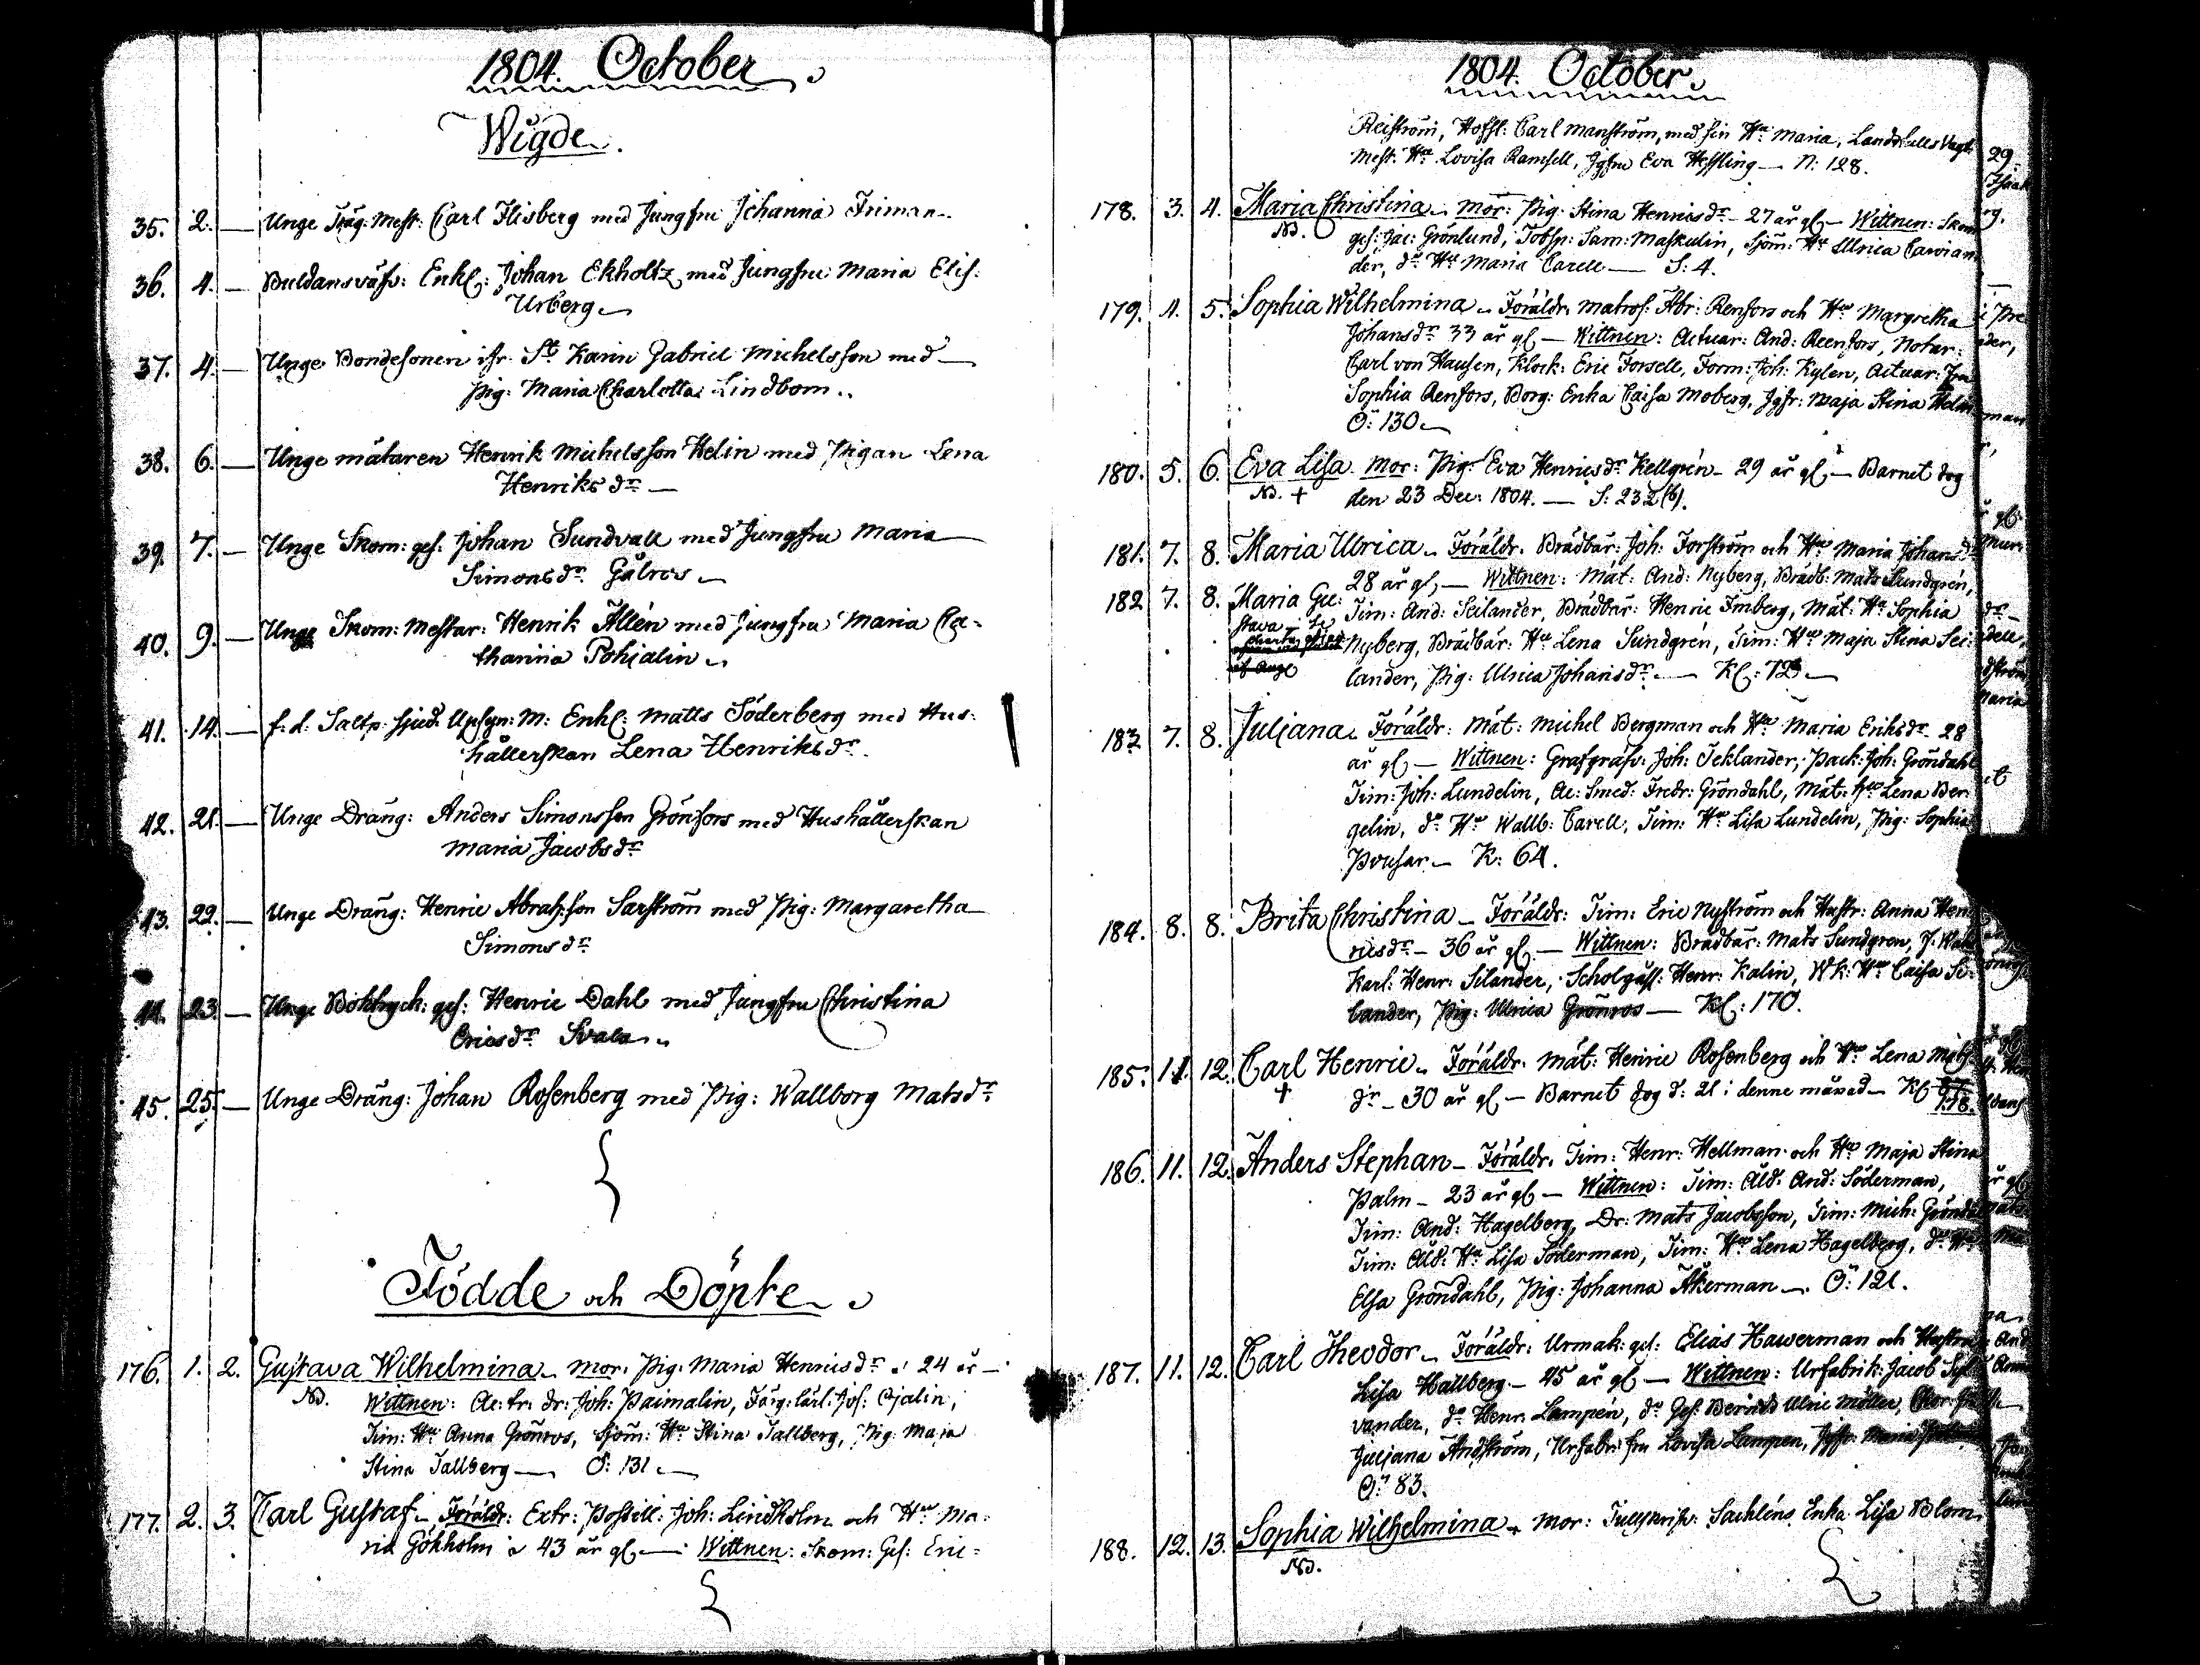 1804. October
Wigde.
35. 2. — Unge Träg: Mest: Carl Flisberg med Jungfru Johanna Friman
36. 4. — Buldansväfv: Enkl: Johan Ekholtz med Jungfru Maria Elis:
Urberg
37. 4. — Unge Bondesonen ifr. St Karin Gabriel Michelsson med —
Pig: Maria Charlotta Lindbom
38. 6. — Unge mätaren Henrik Michelsson Helin med Pigan Lena
Henriksdr —
39. 7. — Unge Skom: ges. Johan Sundvall med Jungfru Maria
Simonsdr Gålros
40. 9. — Unge Skom: Mestar: Henrik Allén med Jungfru Maria Ca-
tharina Pohjalin
41. 14. — f. d. Saltp: sjud. Upsyn: M: Enkl: Matts Söderberg med Hus:
hållerskan Lena Henriksdr
42. 21. — Unge Dräng: Anders Simonsson Grönfors med Hushållerskan
Maria Jacobsdr
43. 22. — Unge Dräng: Henric Abrah:son Sarström med Pig: Margaretha
Simonsdr
44. 23. — Unge Boktryck: ges: Henric Dahl med Jungfru Christina
Ericsdr Svala
45. 25. — Unge Dräng: Johan Rosenberg med Pig: Wallborg Matsdr
Födde och Döpte
176. 1. 2. Gustava Wilhelmina Mor. Pig: Maria Henricsdr 24 år —
Nb. Wittnen: dr: Joh: Paimalin, Färg: lärl: Jos: Ojalin,
Tim: Hu Anna Grönros, Sjöm: Hu Stina Tallberg, Pig: Maja
Stina Tallberg — Ö: 131
177. 2. 3. Carl Gustaf Föräldr: Extr: Postill: Joh: Lindholm och Hu Ma:
ria Gökholm 43 år gl — Wittnen: Skom: Ges: Eric
1804. October
Hofsl: Carl Manström, med sin Hu Maria,
Mest: Hu Lovisa Ramsell, Jgfru Eva Hessling — N: 128.
178. 3. 4. Maria Christina Mor: Pig: Stina Henricsdr 27 år gl — Wittnen: Skom
Nb. ges: Jac: Grönlund, Tobsp: Sam: Maskulin, Sjöm: Hu Ulrica
der, do Hu Maria Carell — S: 4.
179. 4. 5. Sophia Wilhelmina Föräldr. Matros: Abr: Renfors och Hu Margretha
Johansdr 33 år gl — Wittnen: Actuar: And: Reenfors, Notar:
Carl von Hausen, Klock: Eric Forsell, Form: Joh: Kylen, Actuar: Fru
Sophia Renfors, Borg: Enka Caisa Moberg, Jgfr: Maja Stina
Ö: 130
180. 5. 6. Eva Lisa. Mor: Pig: Eva Henricsdr Kellgrén 29 år gl — Barnet dog
Nb. + den 23 Dec: 1804. — S: 232 (b).
181. 7. 8. Maria Ulrica Föräldr. Brädbär: Joh: Forström och Hu Maria Johansdr
28 år gl, — Wittnen: Mät: And: Nyberg, Brädb: Mats Sundgrén,
182 7. 8. Maria Gu: Tim: And: Seilander, Brädbär: Henric Imberg, Mät: Hu Sophia
stava Nyberg, Brädbär: Hu Lena Sundgrén, Tim: Hu Maja Stina Sei:
lander, Pig: Ulrica Johansdr — Kl: 123
183 7. 8. Juliana Föräldr: Mät: Michel Bergman och Hu Maria Eriksdr 28
år gl — Wittnen: Joh: Teklander, Pack: Joh: Gröndahl
Tim: Joh: Lundelin, Smed: Fredr: Gröndahl, Mät: Hu Lena Ber
gelin, do Hu Wallb: Carell, Tim: Hu Lisa Lundelin, Pig: Sophia
K: 64.
184. 8. 8. Brita Christina Föräldr: Tim: Eric Nyström och Hustr: Anna Hen
ricsdr — 36 år gl — Wittnen: Brädbär: Mats Sundgren,
Karl: Henr: Silander, Henr: Kalin, Wk: Hu Caisa Si:
lander, Pig: Ulrica Grönros — Kl: 170.
185. 11. 12. Carl Henric Föräldr. Mät: Henric Rosenberg och Hu Lena Mats
+ dr — 30 år gl — Barnet dog d: 21 i denne månad — Kl
186. 11. 12. Anders Stephan — Föräldr. Tim: Henr: Hellman och Hu Maja Stina
Palm — 23 år gl — Wittnen: Tim: Åld: And: Söderman,
Tim: And: Hagelberg, Dr: Mats Jacobsson, Tim: Mich:
Tim: Åld: Hu Lisa Söderman, Tim: Hu Lena Hagelberg, do Hu
Elsa Gröndahl, Pig: Johanna Åkerman — Ö: 121.
187. 11. 12. Carl Theodor Föräldr. Urmak: ges: Elias Hawerman och Hustru
Lisa Hallberg — 45 år gl — Wittnen: Urfabrik: Jacob
vander, do Henr: Lampén, do Ges: Ulric Möller,
Juliana Andström, Urfabr: fru Lovisa Lampen,
Ö: 83.
188. 12. 13. Sophia Wilhelmina Mor: Enka Lisa Blom
Nb.